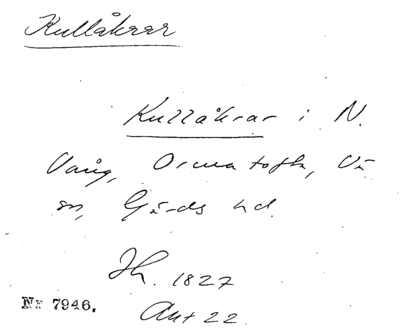 Kullåkrar
Kullåkrar i N.
Vång, Ormatofta, Vä
sn, Gärds hd.
Jh. 1827
Nr 7946.
Akt 22.